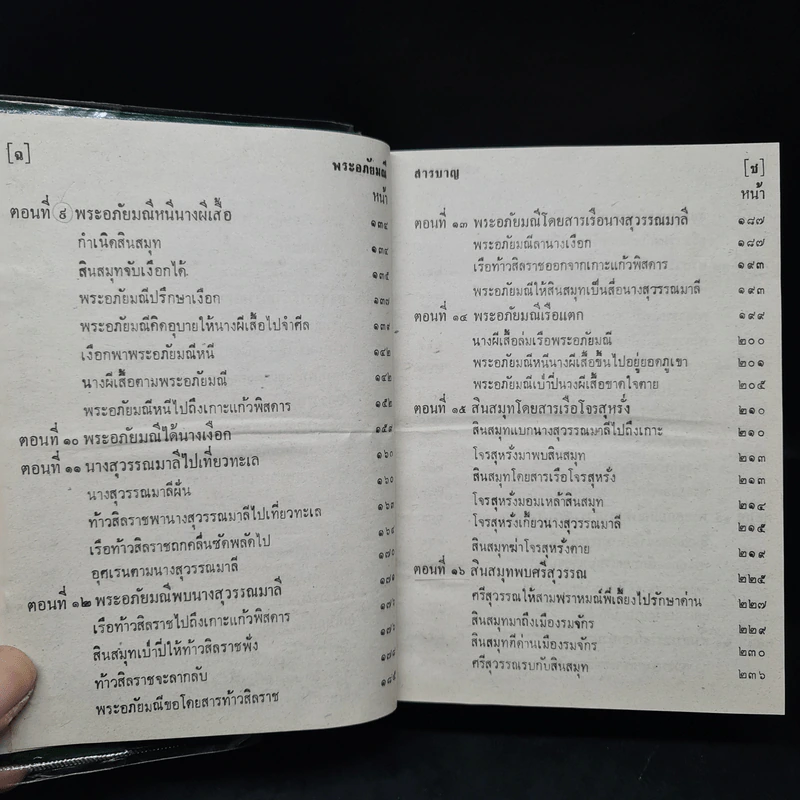 [ฉ]
พระอภัยมณี
หน้า
ตอนที่ ๙ พระอภัยมณีหนีนางผีเสื้อ ๑๓๔
กำเนิดสินสมุท ๑๓๔
สินสมุทจับเงือกได้ ๑๓๕
พระอภัยมณีปรึกษาเงือก ๑๓๗
พระอภัยมณีคิดอุบายให้นางผีเสื้อไปจำศีล ๑๓๙
เงือกพาพระอภัยมณีหนี ๑๔๒
นางผีเสื้อตามพระอภัยมณี ๑๔๒
พระอภัยมณีหนีไปถึงเกาะแก้วพิสดาร ๑๕๒
ตอนที่ ๑๐ พระอภัยมณีได้นางเงือก ๑๕๙
ตอนที่ ๑๑ นางสุวรรณมาลีไปเที่ยวทะเล ๑๖๐
นางสุวรรณมาลีฝัน ๑๖๐
ท้าวสิลราชพานางสุวรรณมาลีไปเที่ยวทะเล
เรือท้าวสิลราชถูกคลื่นซัดพลัดไป
อุศเรนตามนางสุวรรณมาลี ๑๗๐
ตอนที่ ๑๒ พระอภัยมณีพบนางสุวรรณมาลี
เรือท้าวสิลราชไปถึงเกาะแก้วพิสดาร
สินสมุทเป่าปี่ให้ท้าวสิลราชฟัง
ท้าวสิลราชจะลากลับ
พระอภัยมณีขอโดยสารท้าวสิลราช
สารบาญ
[ช]
หน้า
ตอนที่ ๑๓ พระอภัยมณีโดยสารเรือนางสุวรรณมาลี ๑๘๗
พระอภัยมณีลานางเงือก ๑๘๗
เรือท้าวสิลราชออกจากเกาะแก้วพิสดาร ๑๙๓
พระอภัยมณีให้สินสมุทเป็นสื่อนางสุวรรณมาลี ๑๙๓
ตอนที่ ๑๔ พระอภัยมณีเรือแตก ๑๙๙
นางผีเสื้อล่มเรือพระอภัยมณี ๒๐๐
พระอภัยมณีหนีนางผีเสื้อขึ้นไปอยู่ยอดภูเขา ๒๐๑
พระอภัยมณีเป่าปี่นางผีเสื้อขาดใจตาย ๒๐๕
ตอนที่ ๑๕ สินสมุทโดยสารเรือโจรสุหรั่ง ๒๑๐
สินสมุทแบกนางสุวรรณมาลีไปถึงเกาะ ๒๑๐
โจรสุหรั่งมาพบสินสมุท ๒๑๓
สินสมุทโดยสารเรือโจรสุหรั่ง ๒๑๓
โจรสุหรั่งมอมเหล้าสินสมุท ๒๑๔
โจรสุหรั่งเกี้ยวนางสุวรรณมาลี ๒๑๕
สินสมุทฆ่าโจรสุหรั่งตาย ๒๑๙
ตอนที่ ๑๖ สินสมุทพบศรีสุวรรณ ๒๒๕
ศรีสุวรรณให้สามพราหมณ์พี่เลี้ยงไปรักษาด่าน ๒๒๗
สินสมุทมาถึงเมืองรมจักร ๒๒๙
สินสมุทตีด่านเมืองรมจักร ๒๓๐
ศรีสุวรรณรบกับสินสมุท ๒๓๖